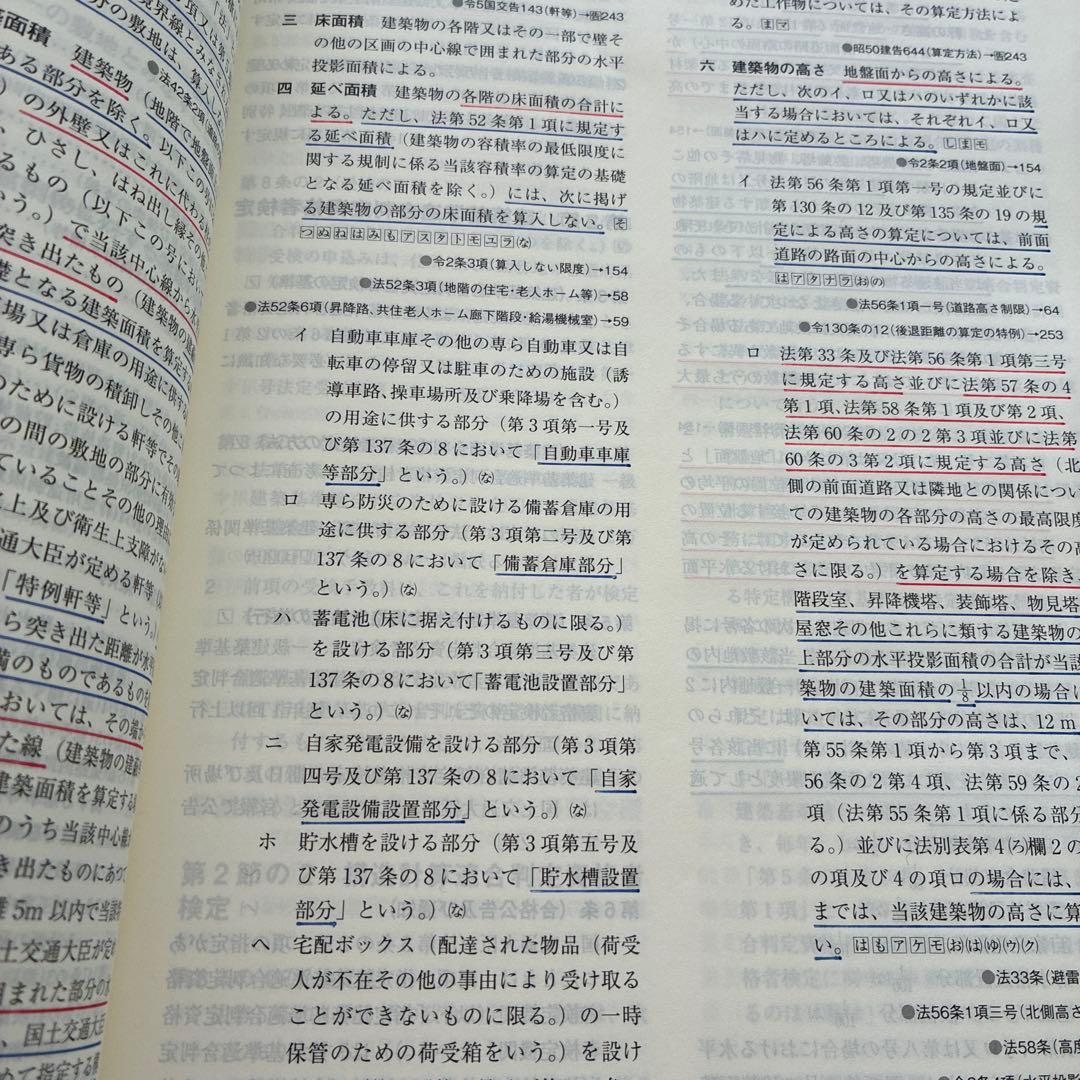 積
建築物(地階で地盤面
ある部分を除く。以下この号
の外壁又はこれに代わる柱の
ひさし、はね出し縁その他
るもの(以下この号において
いう。)で当該中心線から水平
突き出たもの(建築物の
礎となる建築面積を算定する
場又は倉庫の用途に供する
専ら貨物の積卸しその他
のために設ける軒等でその
の間の敷地の部分に有効
ていることその他の理由
上及び衛生上支障がな
通大臣が定める軒等(
「特例軒等」という。
ら突き出た距離が水平
満のものであるものを
おいては、その端か
た線(建築物の建蔽
建築面積を算定する
のうち当該中心線
き出たものにあつて
5m以内で当該
土交通大臣が定
まれた部分の水
、国土交通大臣
めて指定する
●令5国交告143(軒等)→告243
三 床面積 建築物の各階又はその一部で壁そ
の他の区画の中心線で囲まれた部分の水平
投影面積による。
四 延べ面積 建築物の各階の床面積の合計に
よる。ただし、法第52条第1項に規定す
る延べ面積(建築物の容積率の最低限度に
関する規制に係る当該容積率の算定の基礎
となる延べ面積を除く。)には、次に掲げ
る建築物の部分の床面積を算入しない。そ
つぬねはみもアスタトモユラ(な)
●令2条3項(算入しない限度)→154
●法52条3項(地階の住宅・老人ホーム等)→58
●法52条6項(昇降路、共住老人ホーム廊下階段・給湯機械室)→59
イ 自動車車庫その他の専ら自動車又は自
転車の停留又は駐車のための施設(誘
導車路、操車場所及び乗降場を含む。)
の用途に供する部分(第3項第一号及
び第137条の8において「自動車車庫
等部分」という。)(な)
ロ 専ら防災のために設ける備蓄倉庫の用
途に供する部分(第3項第二号及び第
137条の8において「備蓄倉庫部分」
という。)(な)
ハ 蓄電池(床に据え付けるものに限る。)
を設ける部分(第3項第三号及び第
137条の8において「蓄電池設置部分」
という。)(な)
ニ 自家発電設備を設ける部分(第3項第
四号及び第137条の8において「自家
発電設備設置部分」という。)(な)
ホ 貯水槽を設ける部分(第3項第五号及
び第137条の8において「貯水槽設置
部分」という。)(な)
ヘ 宅配ボックス(配達された物品(荷受
人が不在その他の事由により受け取る
ことができないものに限る。)の一時
保管のための荷受箱をいう。)を設け
めた工作物については、その算定方法によ
る。ま マ
●昭50建告644(算定方法)→告243
六 建築物の高さ 地盤面からの高さによる。
ただし、次のイ、ロ又はハのいずれかに該
当する場合においては、それぞれイ、ロ又
はハに定めるところによる。しまそ
●令2条2項(地盤面)→154
イ 法第56条第1項第一号の規定並びに
第130条の12及び第135条の19の規
定による高さの算定については、前面
道路の路面の中心からの高さによる。
はアタナラ(お)(の)
●法56条1項一号(道路高さ制限)→64
●令130条の12(後退距離の算定の特例)→253
ロ 法第33条及び法第56条第1項第三号
に規定する高さ並びに法第57条の4
第1項、法第58条第1項及び第2項、
法第60条の2の2第3項並びに法第
60条の3第2項に規定する高さ(北
側の前面道路又は隣地との関係につい
ての建築物の各部分の高さの最高限度
が定められている場合におけるその高
さに限る。)を算定する場合を除き、
階段室、昇降機塔、装飾塔、物見塔
屋窓その他これらに類する建築物の
上部分の水平投影面積の合計が当該
築物の建築面積の1/8以内の場合に
いては、その部分の高さは、12m
第55条第1項から第3項まで、
56条の2第4項、法第59条の2
項(法第55条第1項に係る部分
る。)並びに法別表第4(ろ)欄2の
の項及び4の項ロの場合には、
までは、当該建築物の高さに算
い。はもアケモ(お)(は)(ゆ)(ウ)(ク)
●法33条(避雷
●法56条1項三号(北側高さ
●法58条(高度